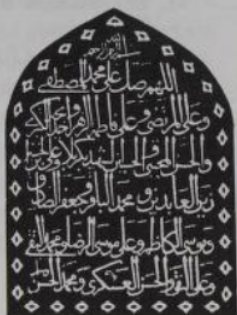 بسم الله الرحمن الرحيم
اللهم صل على محمد المصطفى
وعلي المرتضى و فاطمة الزهراء
والحسن المجتبى والحسين الشهيد بكربلا وعلي
زين العابدين و محمد الباقر و جعفر الصادق
وموسى الكاظم و علي بن موسى الرضا و محمد التقي
وعلي النقي و الحسن العسكري و محمد